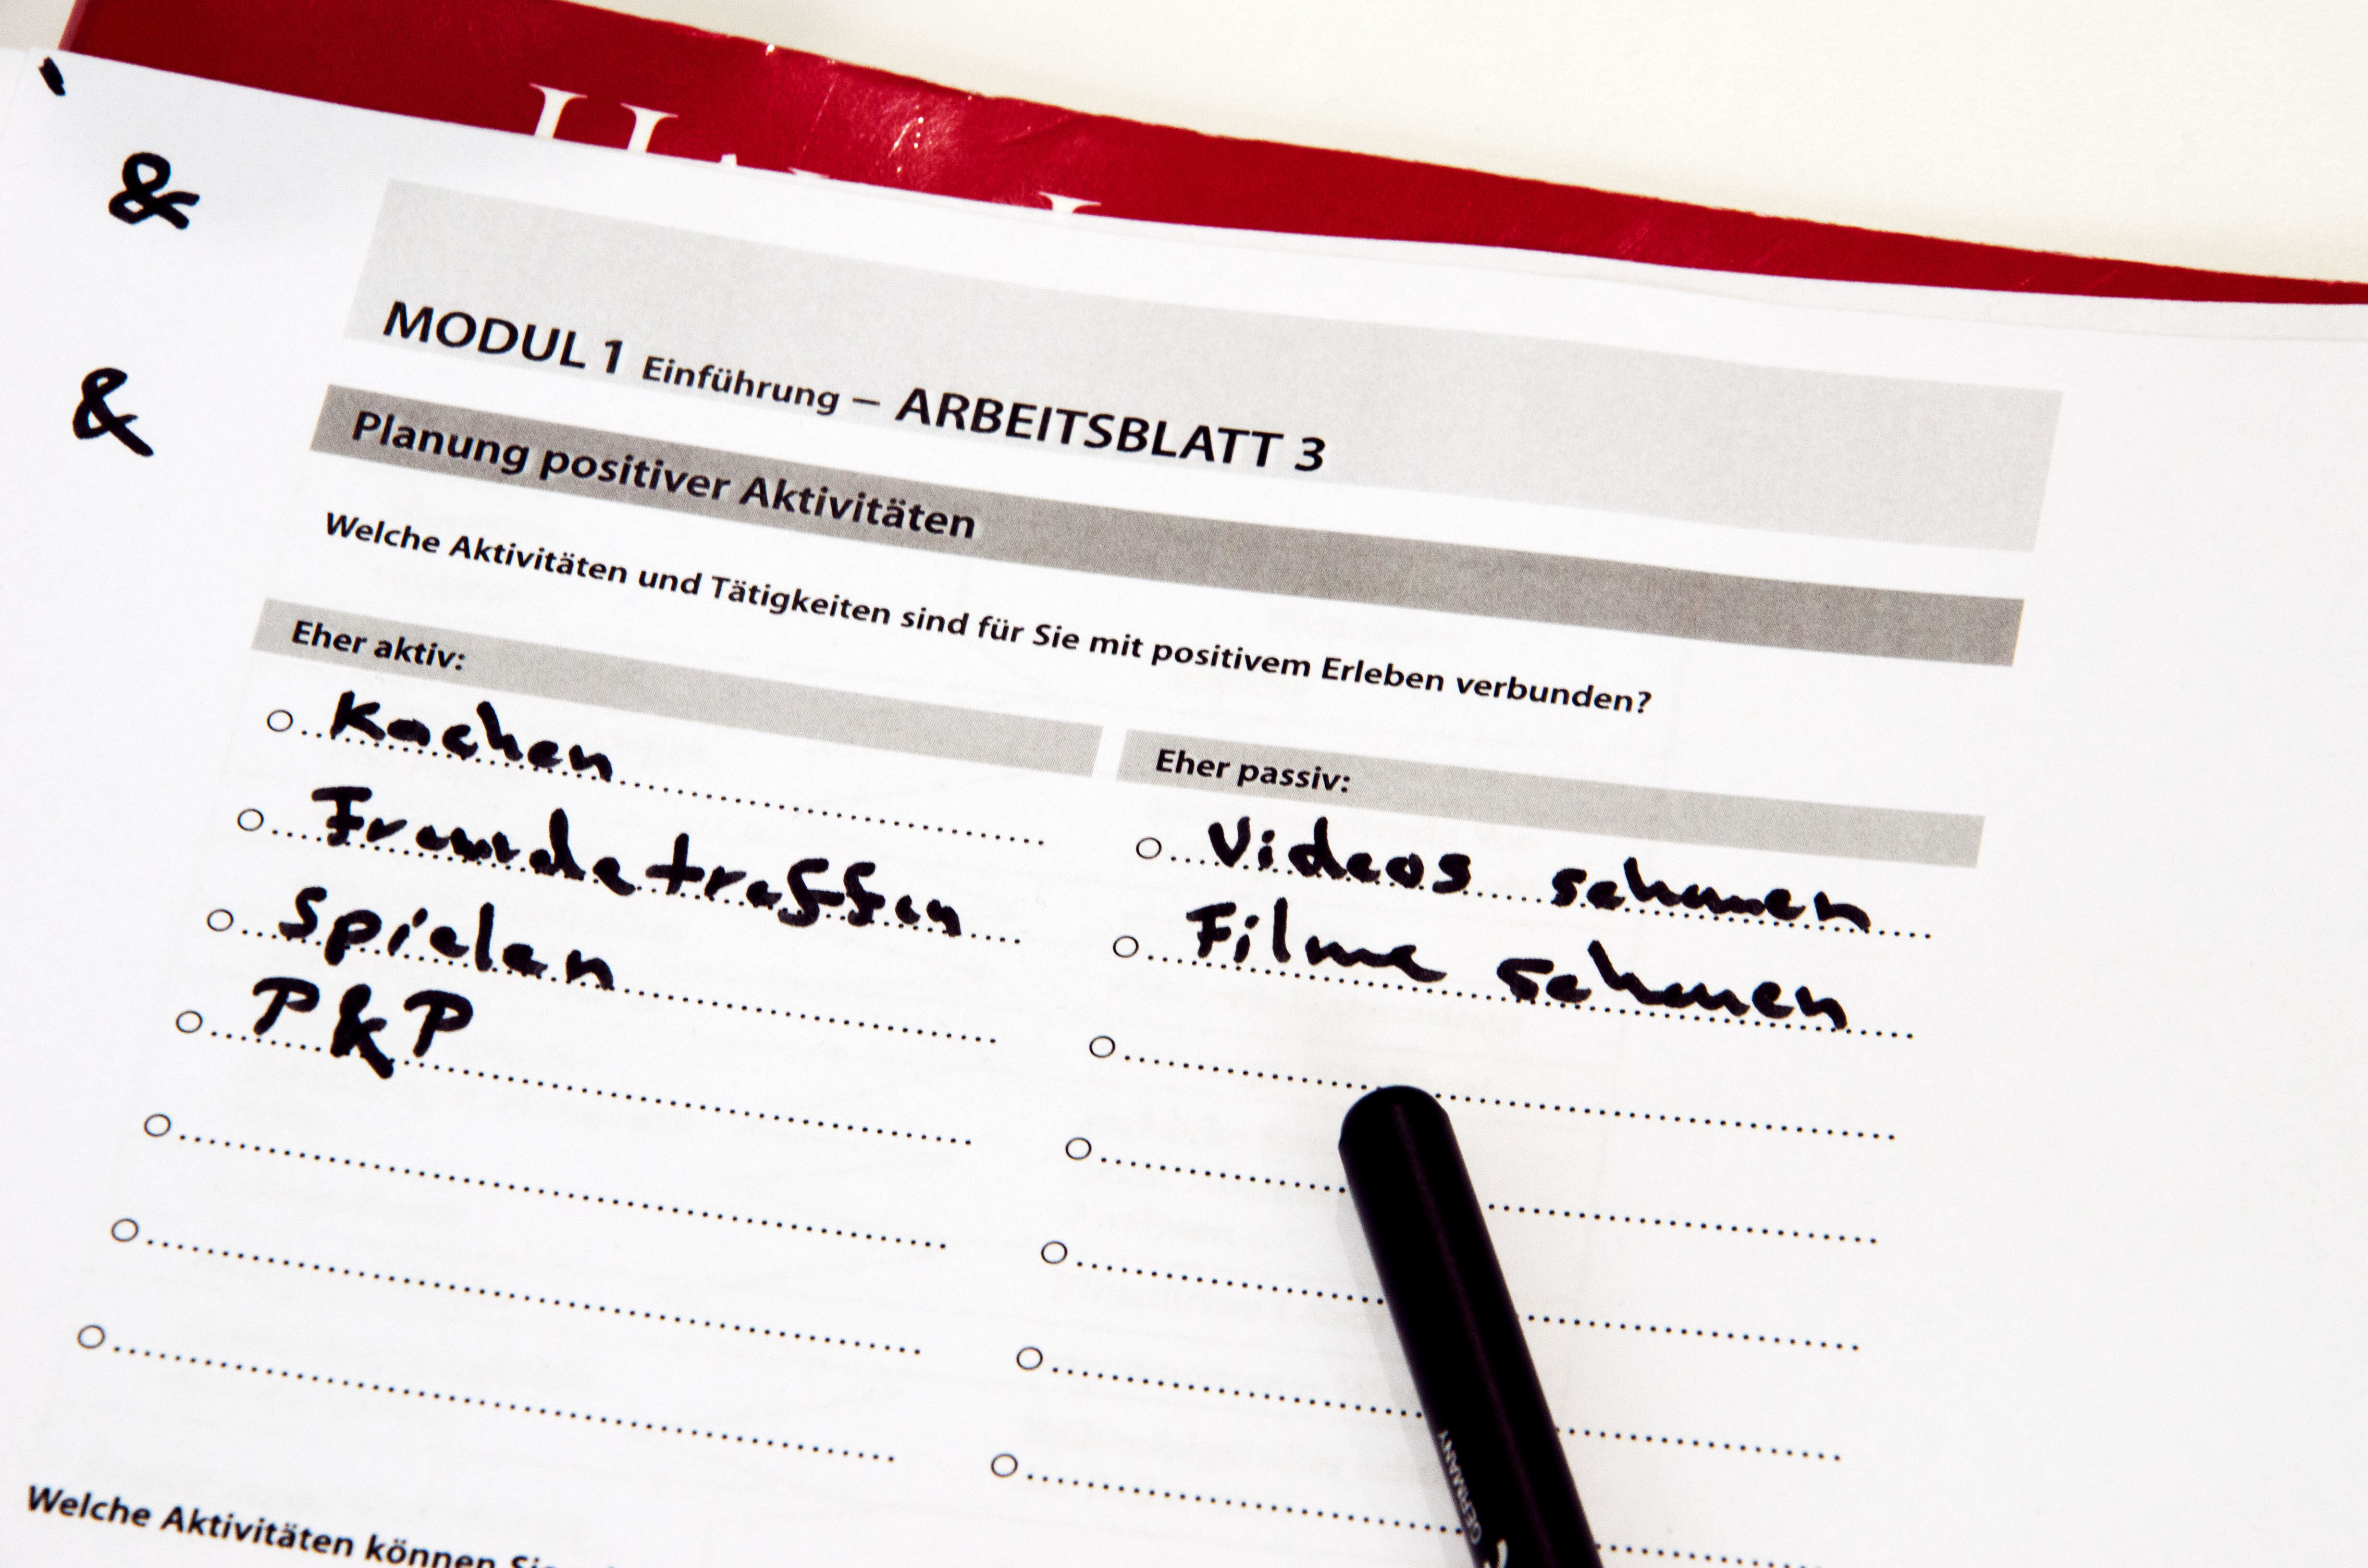 &
&
MODUL 1 Einführung – ARBEITSBLATT 3
Planung positiver Aktivitäten
Welche Aktivitäten und Tätigkeiten sind für Sie mit positivem Erleben verbunden?
Eher aktiv:
Kochen
Freundetreffen
Spielen
P&P
Eher passiv:
Videos schauen
Filme schauen
GERMANY
Welche Aktivitäten können